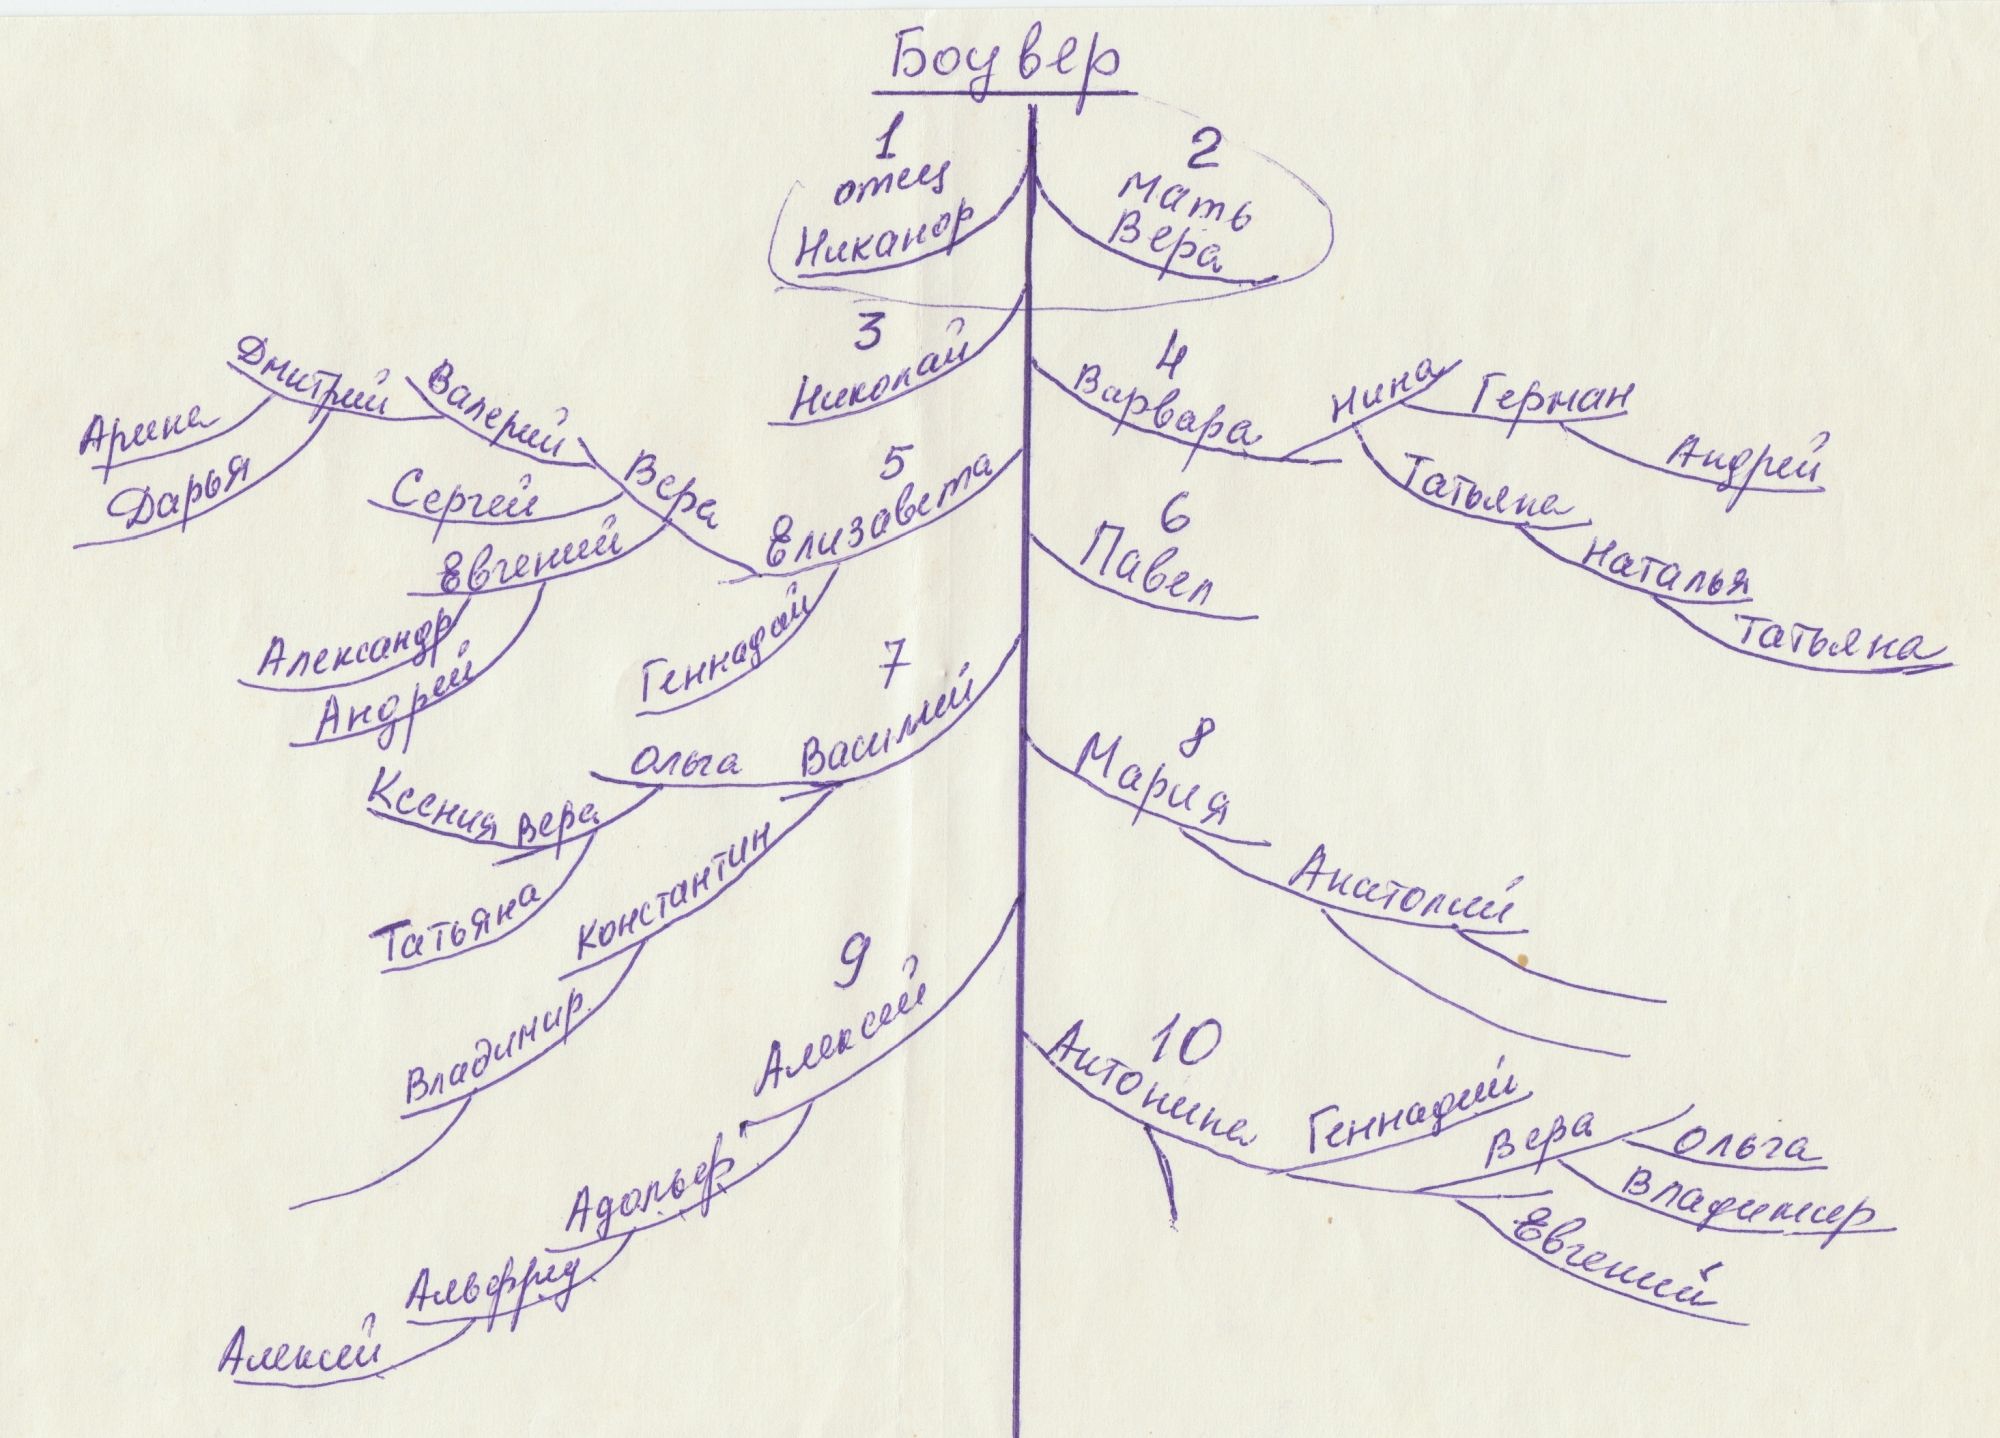 Боувер
1
отец
Никанор
2
Мать
Вера
3
Николай
4
Варвара
Нина
Герман
Андрей
Татьяна
Наталья
Татьяна
5
Елизавета
Вера
Валерий
Дмитрий
Арина
Дарья
Сергей
Евгений
Александр
Андрей
Геннадий
6
Павел
7
Василий
Ольга
Вера
Ксения
Татьяна
Константин
Владимир
8
Мария
Анатолий
9
Алексей
Адольф
Альфрид
Алексей
10
Антонина
Геннадий
Вера
Ольга
Владимир
Евгений